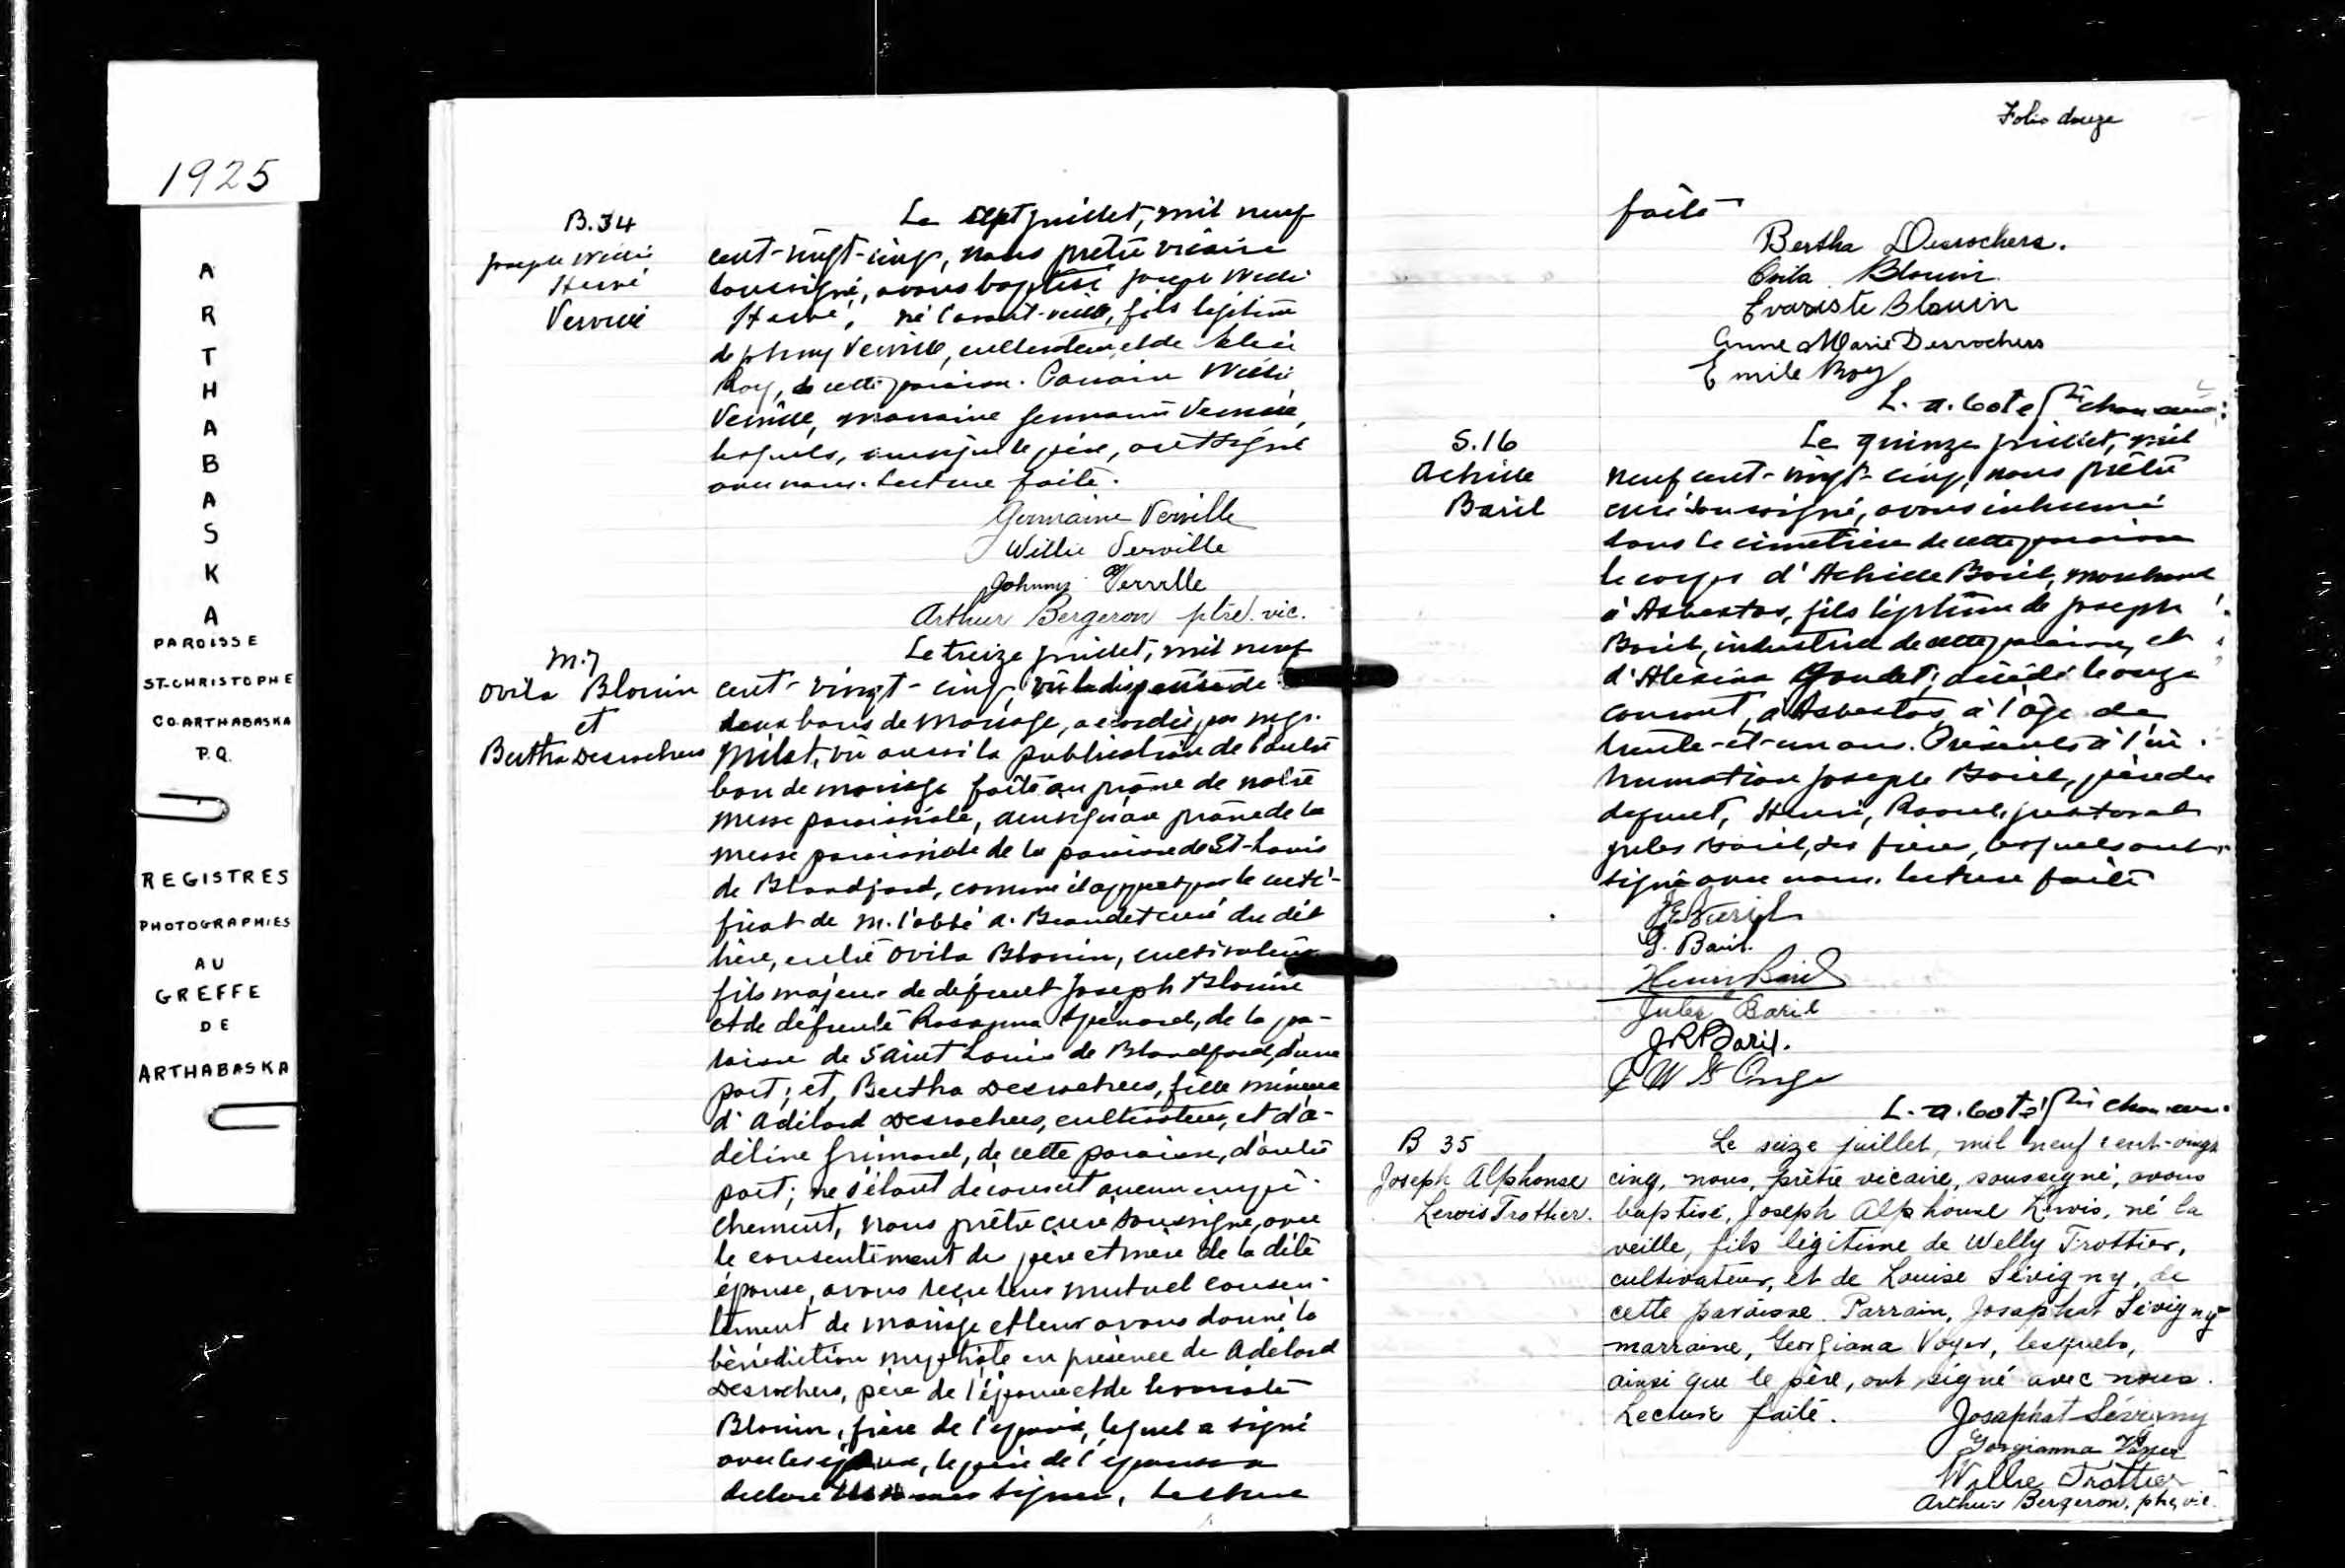 1925
ARTHABASKA
PAROISSE
ST-CHRISTOPHE
CO. ARTHABASKA
P.Q.
REGISTRES
PHOTOGRAPHIES
AU
GREFFE
DE
ARTHABASKA
B.34
Joseph Willie
Hervé
Verville
Le sept juillet, mil neuf
cent-vingt-cinq, nous prêtre vicaire
soussigné, avons baptisé Joseph Willie
Hervé, né l'avant-veille, fils légitime
de Johnny Verville, cultivateur et de
Roy, de cette paroisse. Parrain Willie
Verville, marraine Germaine Verville,
lesquels, ainsi que le père, ont signé
avec nous. Lecture faite.
Germaine Verville
Willie Verville
Johnny Verville
Arthur Bergeron ptre. vic.
M.7
Ovila Blouin
et
Bertha Desrochers
Le treize juillet, mil neuf
cent-vingt-cinq, vu la dispense de
deux bans de mariage, accordée par Mgr.
Milot, vu aussi la publication de l'autre
ban de mariage faite au prône de notre
messe paroissiale, ainsi qu'au prône de la
messe paroissiale de la paroisse de St-Louis
de Blandford, comme il appert par le certi-
ficat de M. l'abbé A. Beaudet curé du dit
lieu, entre Ovila Blouin, cultivateur
fils majeur de défunt Joseph Blouin
et de défunte Rosanna Spenard, de la pa-
roisse de Saint Louis de Blandford, d'une
part; et, Bertha Desrochers, fille mineure
d'Adélard Desrochers, cultivateur, et d'A-
déline Grimard, de cette paroisse, d'autre
part; ne s'étant découvert aucun empê-
chement, nous prêtre curé soussigné, avec
le consentement des père et mère de la dite
épouse, avons reçu leur mutuel consen-
tement de mariage et leur avons donné la
bénédiction nuptiale en présence de Adélard
Desrochers, père de l'épouse et de Evariste
Blouin, frère de l'époux, lequel a signé
avec les époux, le père de l'épouse a
déclaré signer. Lecture
Folio douze
faite
Bertha Desrochers.
Ovila Blouin
Evariste Blouin
Anne Marie Desrochers
Emile Roy
L. A. Côté ptre chan curé
S.16
Achille
Baril
Le quinze juillet, mil
neuf cent-vingt-cinq, nous prêtre
curé soussigné, avons inhumé
dans le cimetière de cette paroisse
le corps d'Achille Baril, marchand
à Asbestos, fils légitime de Joseph
Baril, industriel de cette paroisse, et
d'Alexina Goudet; décédé le onze
courant, à Asbestos à l'âge de
trente-et-un ans. Présents à l'in-
humation Joseph Baril, père du
défunt, Henri, Raoul,
Jules Baril, ses frères, lesquels ont
signé avec nous. Lecture faite
G. Baril.
Henri Baril
Jules Baril
J R Baril.
W St Onge
L. A. Côté ptre chan curé.
B 35
Joseph Alphonse
Lewis Trottier.
Le seize juillet, mil neuf cent-vingt
cinq, nous, prêtre vicaire, soussigné, avons
baptisé, Joseph Alphonse Lewis, né la
veille, fils légitime de Welly Trottier,
cultivateur, et de Louise Sévigny, de
cette paroisse. Parrain, Josaphat Sévigny
marraine, Georgiana Voyer, lesquels,
ainsi que le père, ont signé avec nous.
Lecture faite.
Josaphat Sévigny
Georgianna Voyer
Willie Trottier
Arthur Bergeron, ptre, vic.